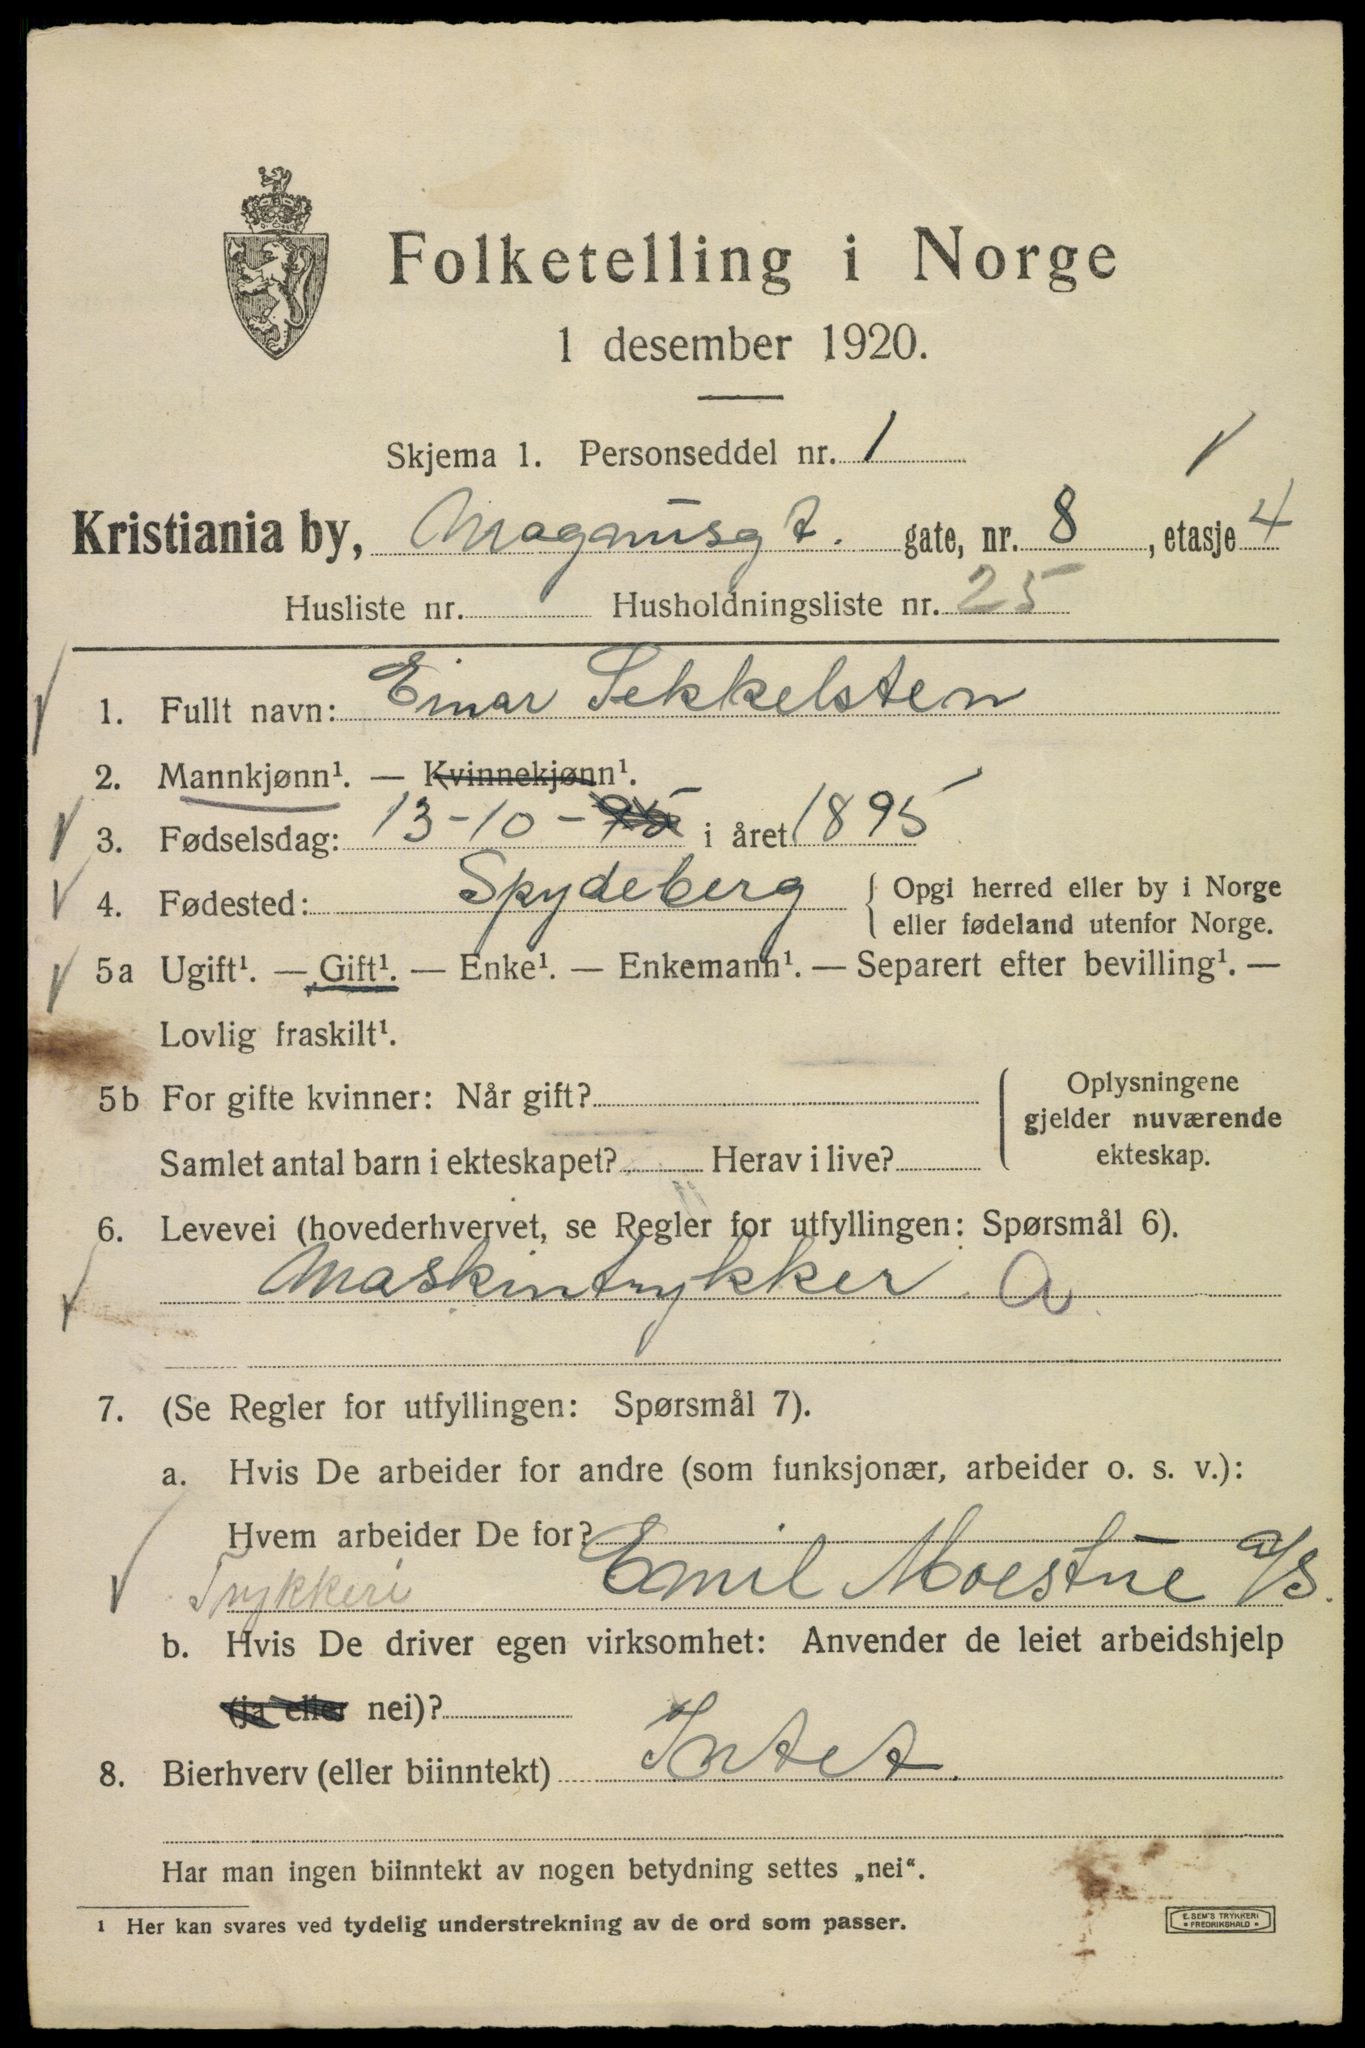 Folketelling i Norge
1 desember 1920.
Skjema 1. Personseddel nr. 1
Kristiania by, Magnusgt. gate, nr. 8, etasje 4
Husliste nr. Husholdningsliste nr. 25
1. Fullt navn: Einar Sekkelsten
2. Mannkjønn¹. — Kvinnekjønn¹.
3. Fødselsdag: 13-10-95 i året 1895
4. Fødested: Spydeberg { Opgi herred eller by i Norge
eller fødeland utenfor Norge.
5a Ugift¹. — Gift¹. — Enke¹. — Enkemann¹. — Separert efter bevilling¹. —
Lovlig fraskilt¹.
5b For gifte kvinner: Når gift?
Samlet antal barn i ekteskapet? Herav i live?
Oplysningene
gjelder nuværende
ekteskap.
6. Levevei (hovederhvervet, se Regler for utfyllingen: Spørsmål 6).
Maskintrykker. a
7. (Se Regler for utfyllingen: Spørsmål 7).
a. Hvis De arbeider for andre (som funksjonær, arbeider o. s. v.):
Hvem arbeider De for?
Trykkeri Emil Moestue a/s.
b. Hvis De driver egen virksomhet: Anvender de leiet arbeidshjelp
(ja eller nei)?
8. Bierhverv (eller biinntekt) Intet.
Har man ingen biinntekt av nogen betydning settes „nei“.
¹ Her kan svares ved tydelig understrekning av de ord som passer.
E. SEM'S TRYKKERI
• FREDRIKSHALD •